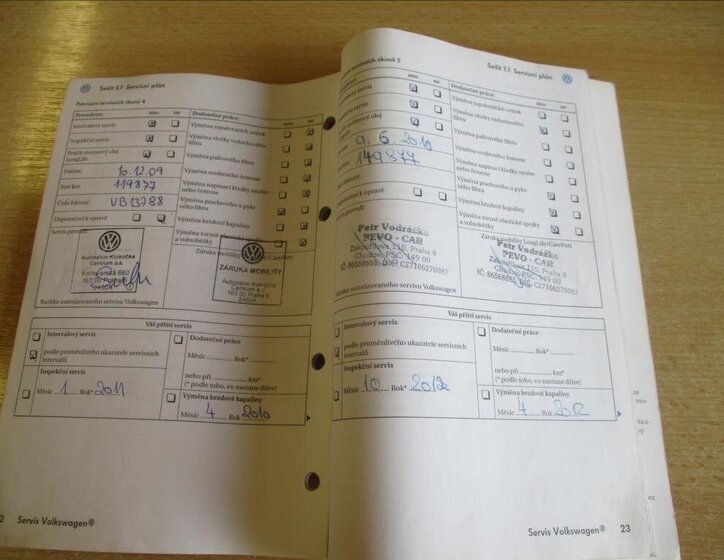 Sešit 1.1 Servisní plán
Potvrzení servisních úkonů 4
Provedeno: ano ne
Intervalový servis
Inspekční servis
Použit motorový olej
LongLife
Datum: 10.12.09
Stav km: 119877
Číslo faktury: VB13788
Doporučení k opravě
Servis provedl:
Dodatečné práce: ano ne
Výměna zapalovacích svíček
Výměna vložky vzduchového
filtru
Výměna palivového filtru
Výměna ozubeného řemene
Výměna napínací kladky ozube-
ného řemene
Výměna prachového a pylo-
vého filtru
Výměna brzdové kapaliny
Výměna tormé elastické spojky
a volnoběžky
Záruka mobility
Autosalon Klokočka
Centrum a.s.
Karlovarská 660
163 00 Praha 6
ZÁRUKA MOBILITY
Autosalon Klokočka
Centrum a.s.
163 00 Praha 6
Razítko autorizovaného servisu Volkswagen
Váš příští servis
Intervalový servis
podle proměnlivého ukazatele servisních
intervalů
Inspekční servis
Měsíc 1 Rok* 2011
Dodatečné práce
Měsíc Rok*
nebo při km*
(* podle toho, co nastane dříve)
Výměna brzdové kapaliny
Měsíc 4 Rok 2010
Servis Volkswagen®
Sešit 1.1 Servisní plán
servisních úkonů 5
ano ne
servis
servis
motorový olej
9.6.2010
149877
faktury:
k opravě
Dodatečné práce: ano ne
Výměna zapalovacích svíček
Výměna vložky vzduchového
filtru
Výměna palivového filtru
Výměna ozubeného řemene
Výměna napínací kladky ozube-
ného řemene
Výměna prachového a pylo-
vého filtru
Výměna brzdové kapaliny
Výměna tormé elastické spojky
a volnoběžky
Záruka mobility LongLife/CarePort
Petr Vodrážka
PEVO - CAR
Zakouřilova 119, Praha 4
Chodov, PSČ: 149 00
Petr Vodrážka
PEVO - CAR
Zakouřilova 119, Praha 4
Chodov, PSČ: 149 00
Razítko autorizovaného servisu Volkswagen
Váš příští servis
Intervalový servis
podle proměnlivého ukazatele servisních
intervalů
Inspekční servis
Měsíc 10 Rok*
Dodatečné práce
Měsíc Rok*
nebo při km*
(* podle toho, co nastane dříve)
Výměna brzdové kapaliny
Měsíc 4 Rok 2012
Servis Volkswagen® 23